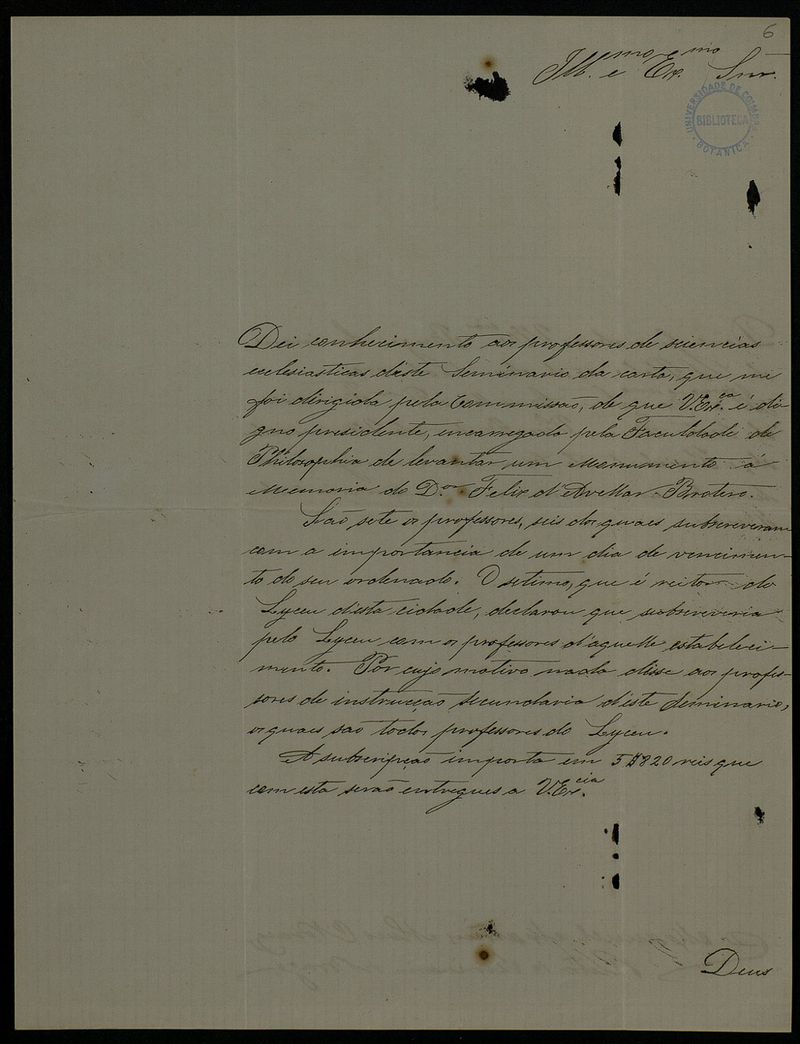 6
Ill.mo e Ex.mo Snr.
UNIVERSIDADE DE COIMBRA
BIBLIOTECA
BOTANICA
Dei conhecimento aos professores de sciencias
ecclesiasticas d'este Seminario da carta, que me
foi dirigida pela Commissão, de que V.Ex.cia é di-
gno presidente, encarregada pela Faculdade de
Philosophia de levantar um Monumento á
Memoria do D.or Felix d'Avellar Brotero.
São sete os professores, seis dos quaes subscreveram
com a importancia de um dia de vencimen-
to do seu ordenado. O setimo, que é reitor do
Lyceu desta cidade, declarou que subscreveria
pelo Lyceu com os professores d'aquelle estabeleci-
mento. Por cujo motivo nada disse aos profes-
sores de instrucção secundaria d'este Seminario,
os quaes são todos professores do Lyceu.
A subscripção importa em 5$820 reis que
com esta serão entregues a V.Ex.cia
Deus